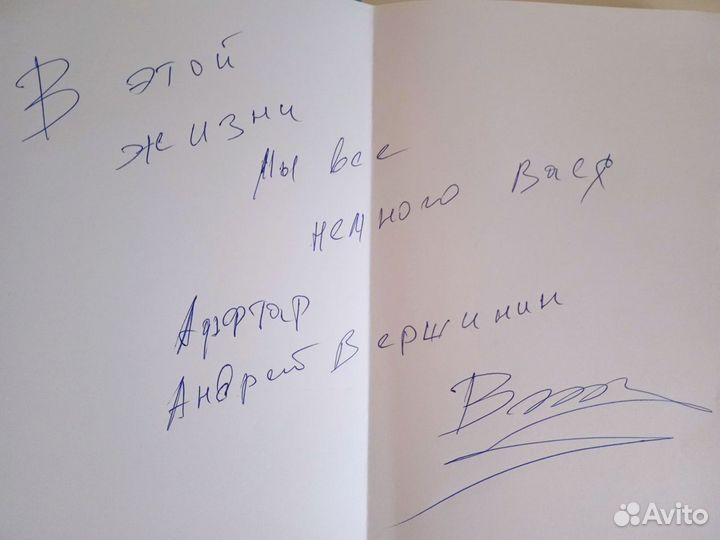 В этой
жизни
мы все
немного Вася
Аффтар
Андрей Вершинин
Avito